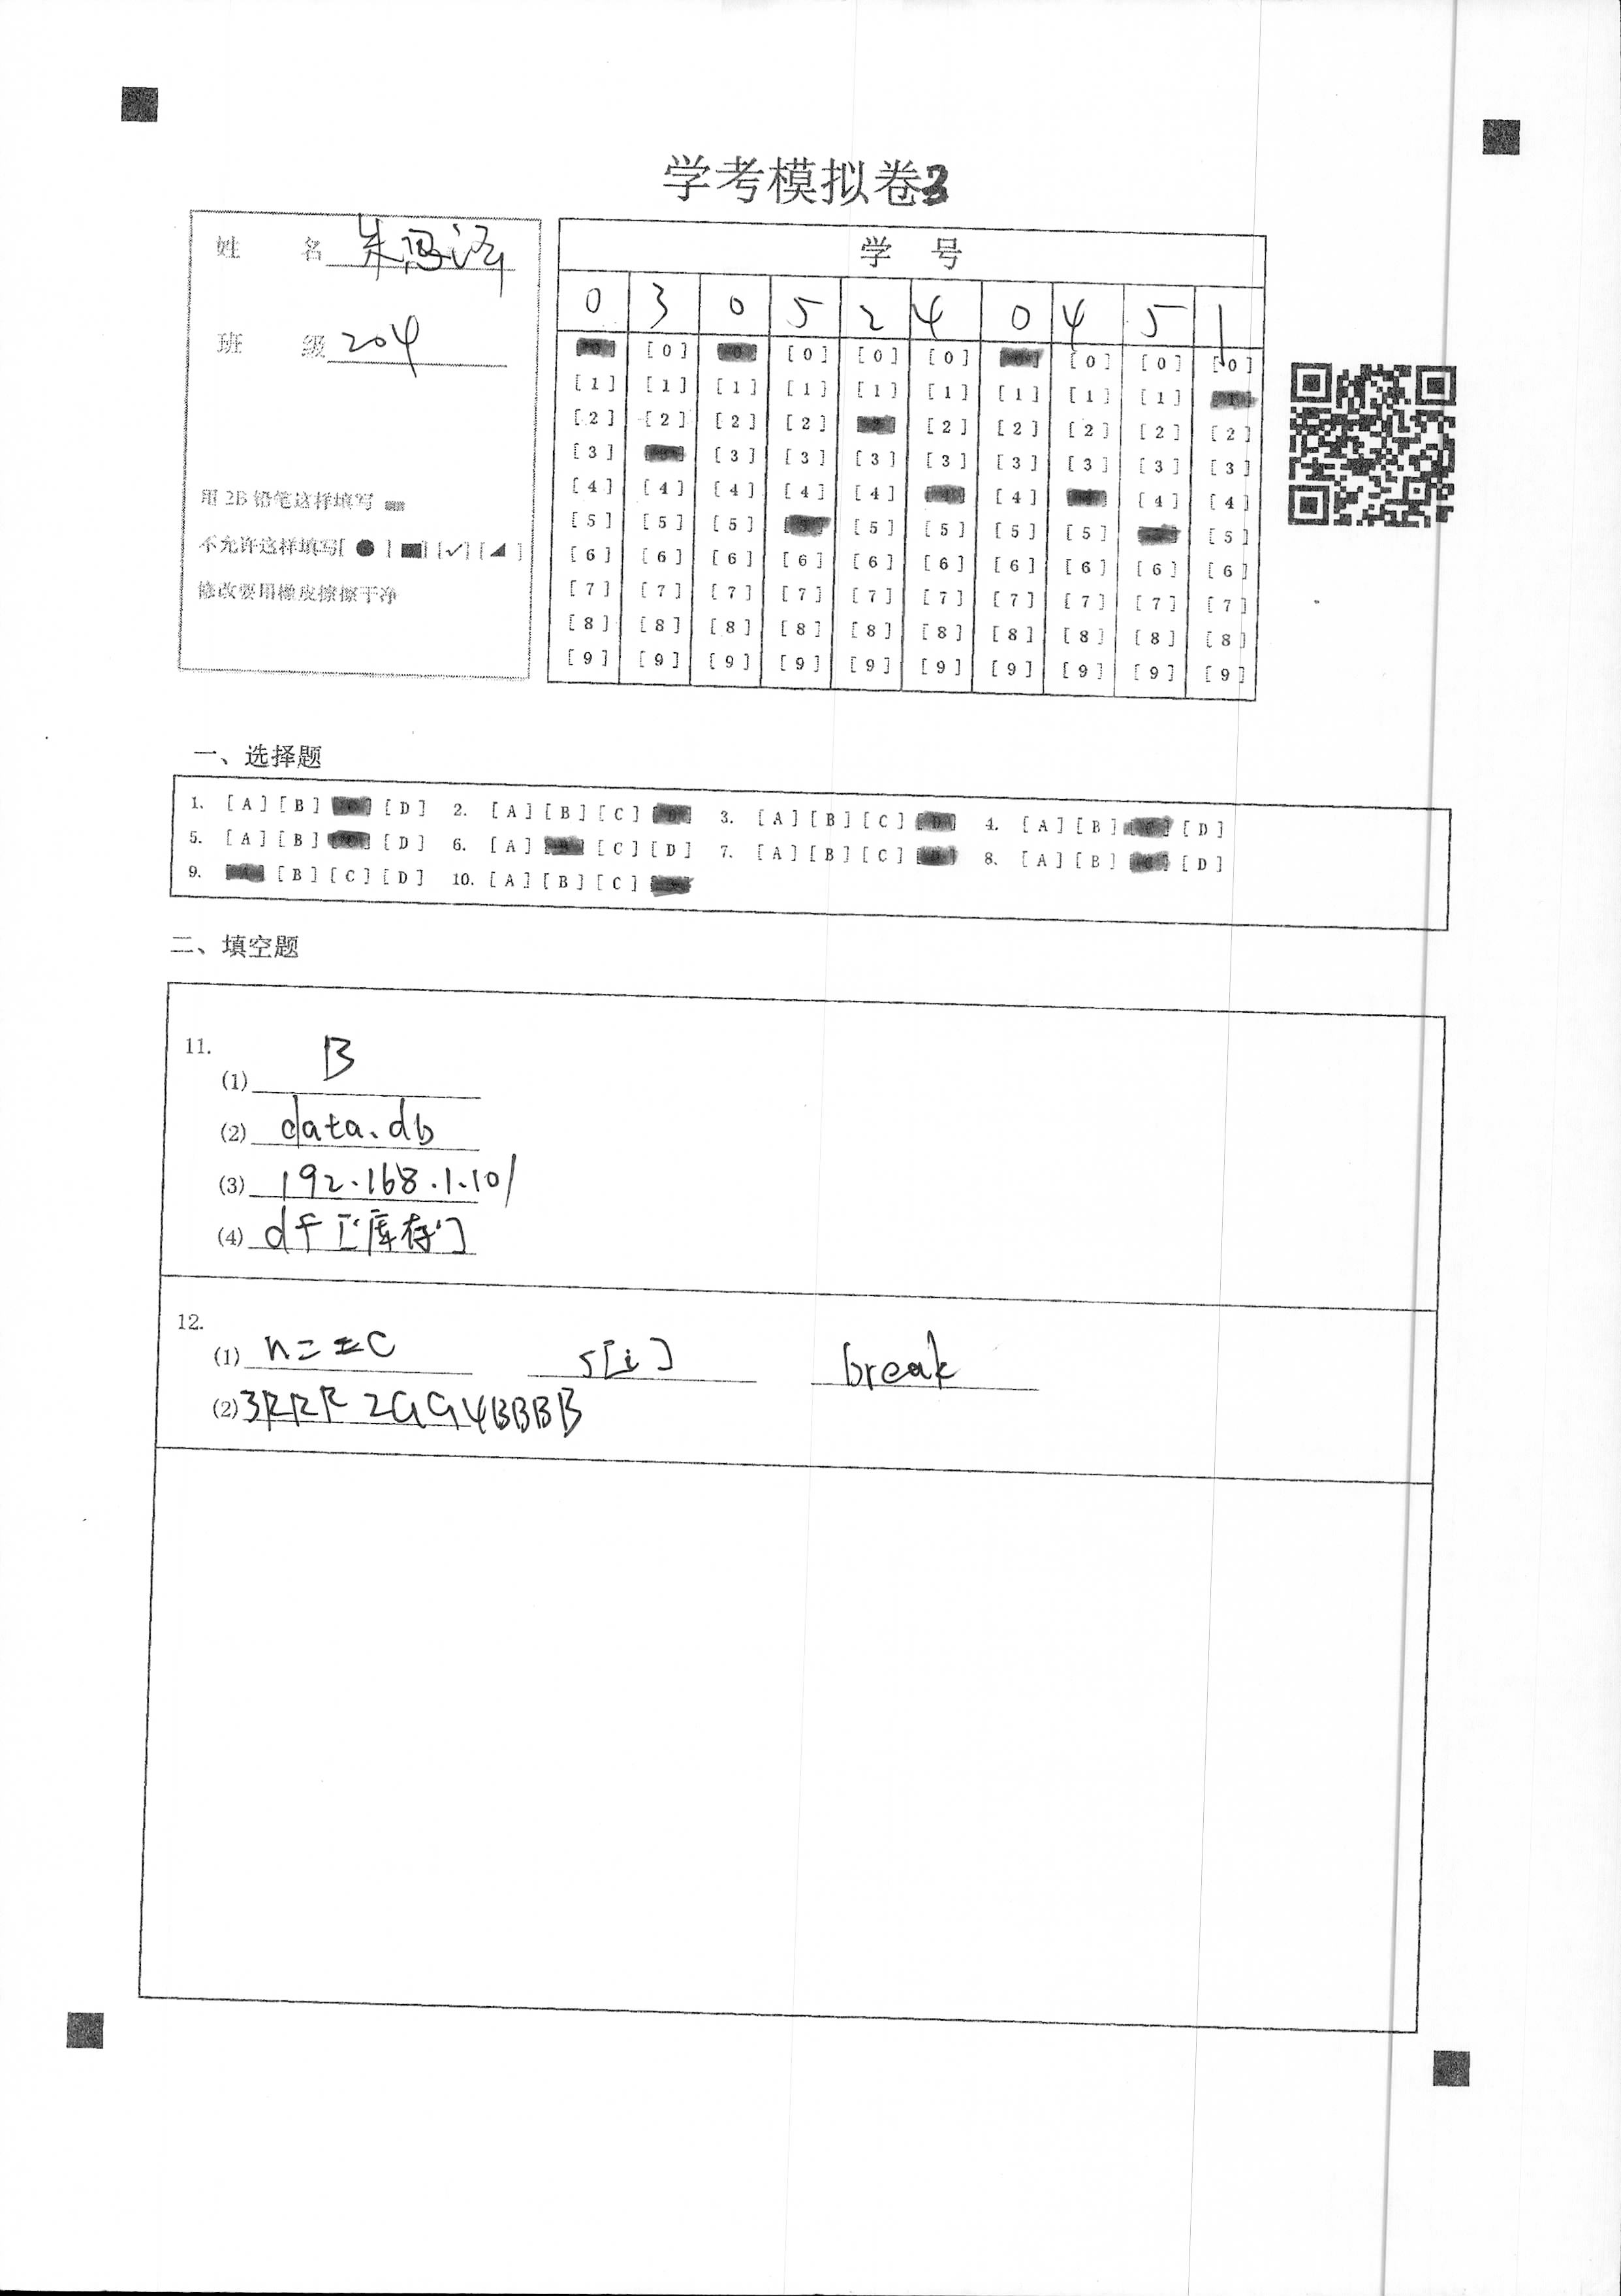 学考模拟卷3
姓 名 朱冯诺
班 级 204
用 2B 铅笔这样填写
不允许这样填写[ ● ] [■] [✓] [◢ ]
修改要用橡皮擦擦干净
学 号
0 3 0 5 2 4 0 4 5 1
[0] [0] [0] [0] [0] [0] [0]
[1] [1] [1] [1] [1] [1] [1] [1] [1]
[2] [2] [2] [2] [2] [2] [2] [2] [2]
[3] [3] [3] [3] [3] [3] [3] [3] [3]
[4] [4] [4] [4] [4] [4] [4] [4]
[5] [5] [5] [5] [5] [5] [5] [5]
[6] [6] [6] [6] [6] [6] [6] [6] [6] [6]
[7] [7] [7] [7] [7] [7] [7] [7] [7] [7]
[8] [8] [8] [8] [8] [8] [8] [8] [8] [8]
[9] [9] [9] [9] [9] [9] [9] [9] [9] [9]
一、选择题
1. [A] [B] [D] 2. [A] [B] [C] 3. [A] [B] [C] [D] 4. [A] [B] [D]
5. [A] [B] [D] 6. [A] [C] [D] 7. [A] [B] [C] 8. [A] [B] [D]
9. [B] [C] [D] 10. [A] [B] [C]
二、填空题
11.
(1) B
(2) data.db
(3) 192.168.1.101
(4) df["库存"]
12.
(1) n==c s[i] break
(2) 3RRR2GG4BBBB